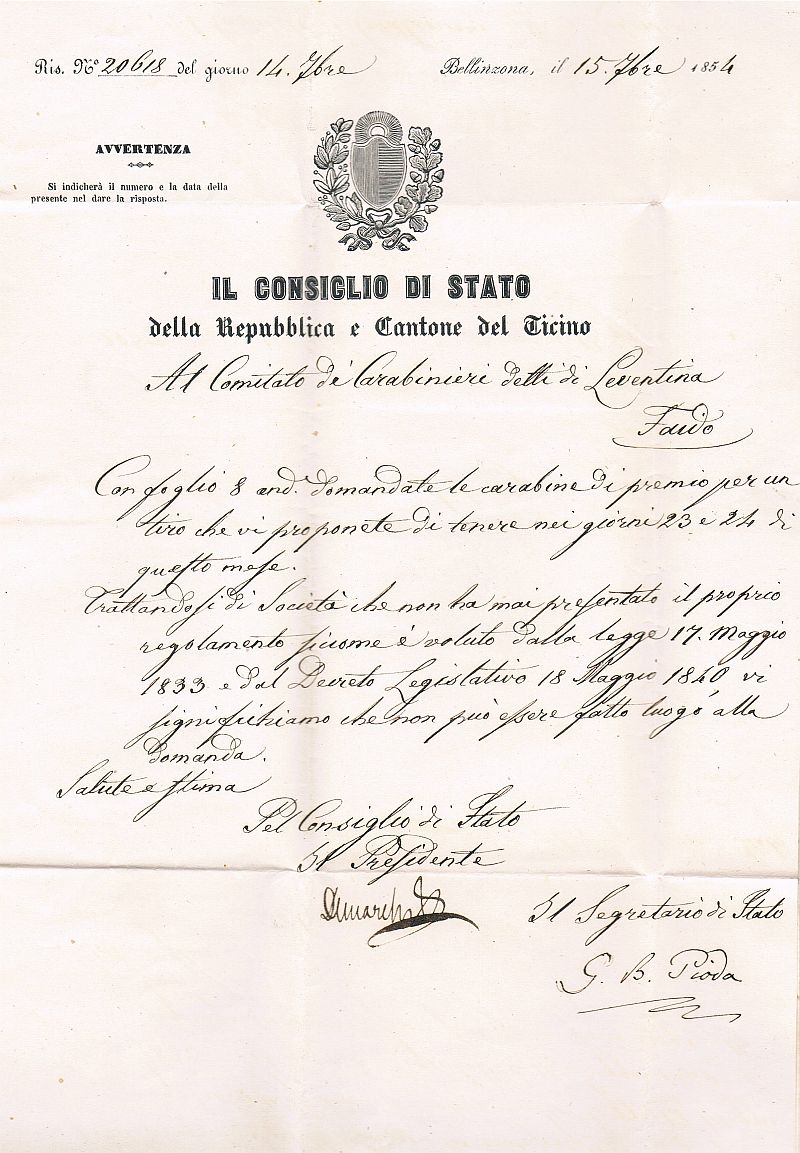 Ris. N.° 20618 del giorno 14. 7bre Bellinzona, il 15. 7bre 1854
AVVERTENZA
Si indicherà il numero e la data della
presente nel dare la risposta.
IL CONSIGLIO DI STATO
della Repubblica e Cantone del Ticino
Al Comitato de' Carabinieri detti di Leventina
Faido
Con foglio 8 and. domandate le carabine di premio per un
tiro che vi proponete di tenere nei giorni 23 e 24 di
questo mese.
Trattandosi di Società che non ha mai presentato il proprio
regolamento siccome è voluto dalla legge 17. Maggio
1833 e dal Decreto Legislativo 18 Maggio 1840 vi
significhiamo che non può essere fatto luogo alla
domanda.
Salute e stima
Pel Consiglio di Stato
Il Presidente
Il Segretario di Stato
G. B. Pioda